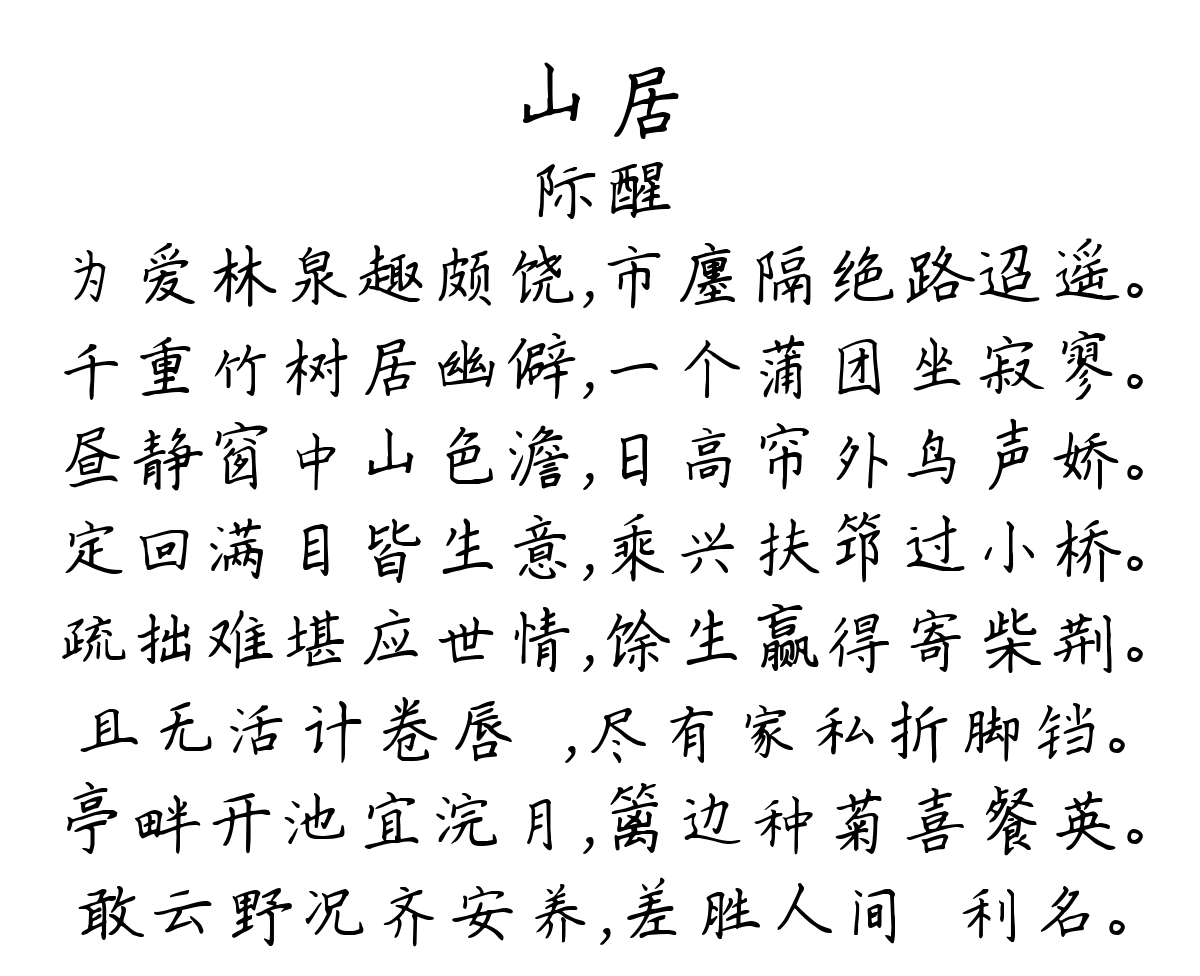 山居
际醒
为爱林泉趣颇饶,市廛隔绝路迢遥。
千重竹树居幽僻,一个蒲团坐寂寥。
昼静窗中山色澹,日高帘外鸟声娇。
定回满目皆生意,乘兴扶筇过小桥。
疏拙难堪应世情,馀生赢得寄柴荆。
且无活计卷唇 ,尽有家私折脚铛。
亭畔开池宜浣月,篱边种菊喜餐英。
敢云野况齐安养,差胜人间 利名。